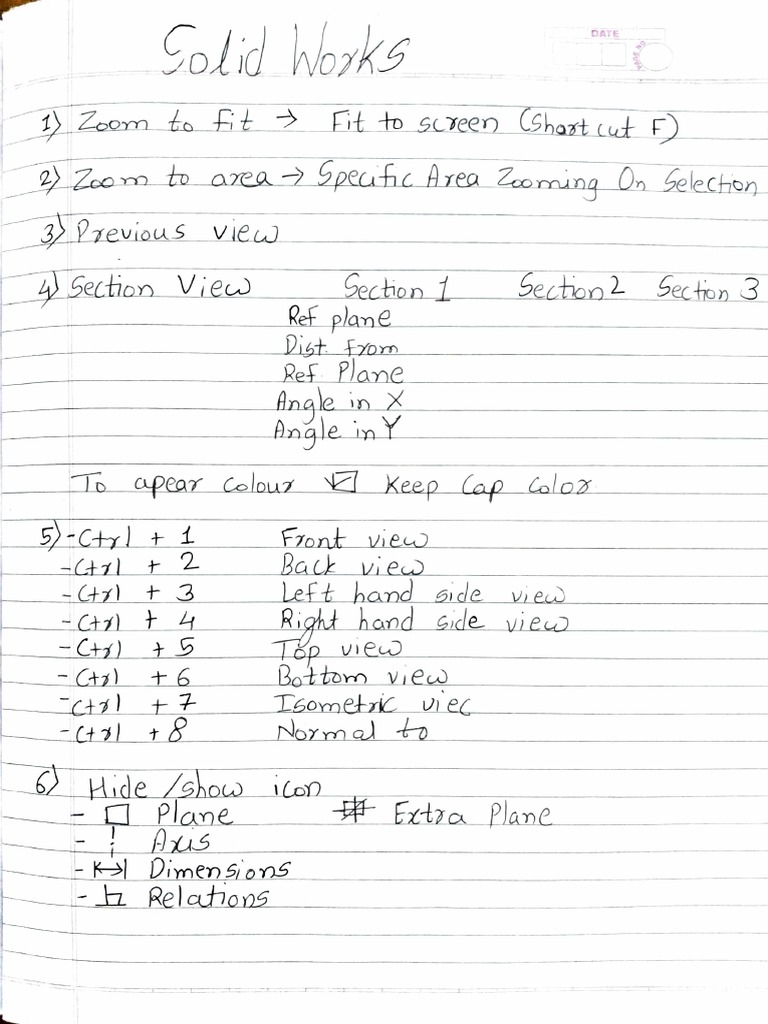 Solid Works
DATE
PAGE NO
1) Zoom to fit → Fit to screen (Shortcut F)
2) Zoom to area → Specific Area Zooming On Selection
3) Previous view
4) Section View Section 1 Section 2 Section 3
Ref plane
Dist. from
Ref. Plane
Angle in X
Angle in Y
To apear colour ☑ Keep Cap Color
5) - Ctrl + 1 Front view
- Ctrl + 2 Back view
- Ctrl + 3 Left hand side view
- Ctrl + 4 Right hand side view
- Ctrl + 5 Top view
- Ctrl + 6 Bottom view
- Ctrl + 7 Isometric viec
- Ctrl + 8 Normal to
6) Hide /show icon
- Plane Extra Plane
- Axis
- Dimensions
- Relations